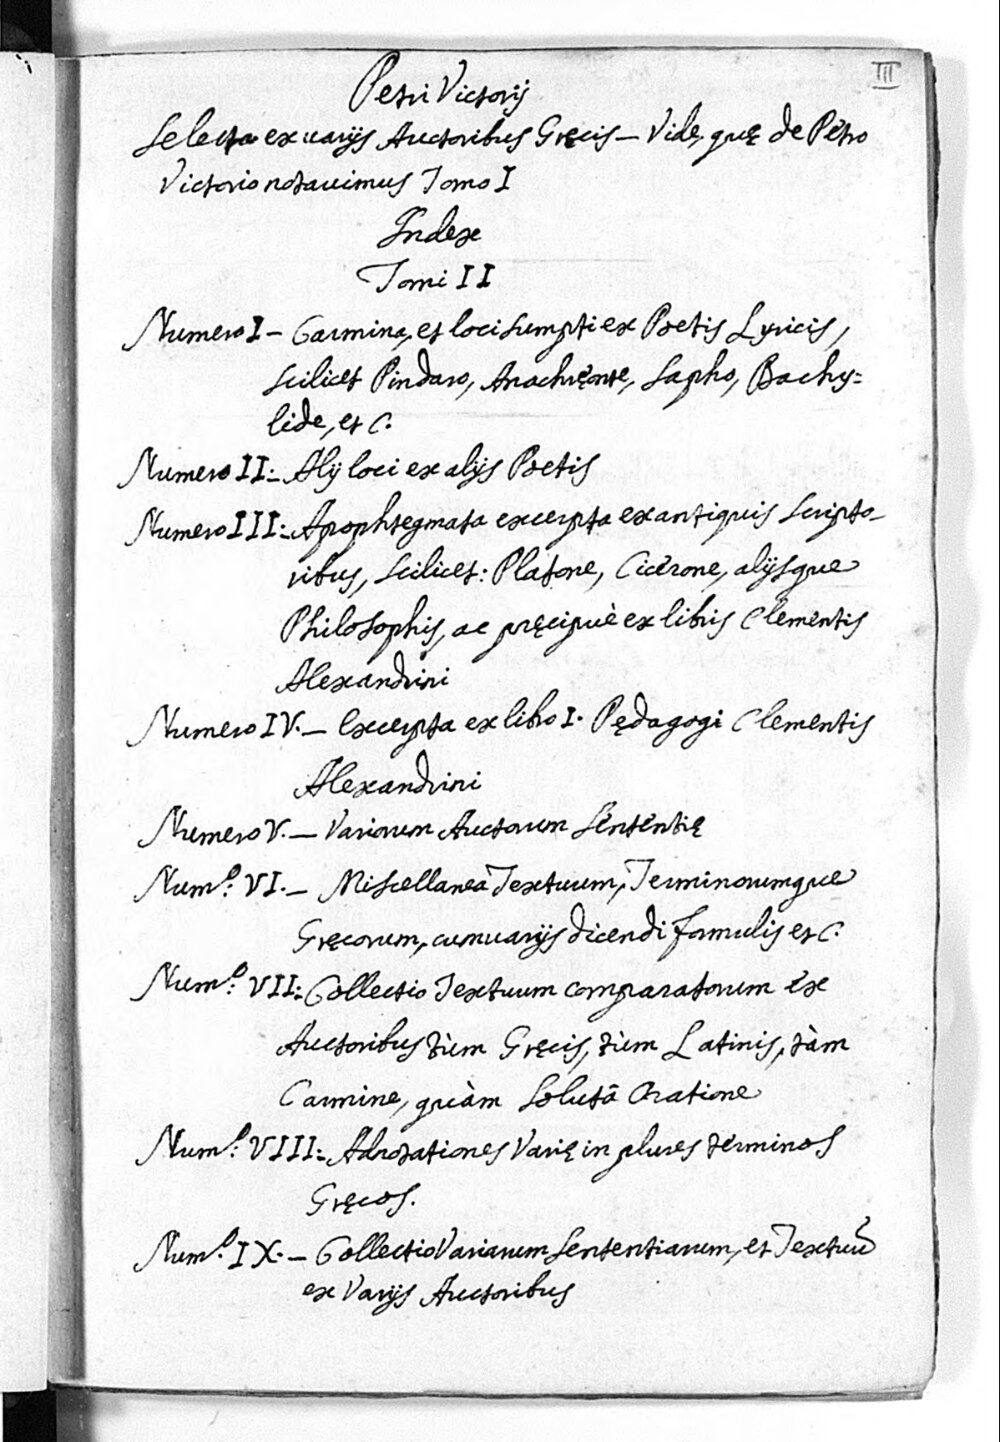 III
Petri Victorij
Selecta ex uarijs Auctoribus Gręcis – Vide, quę de Petro
Victorio notauimus Tomo I
Index
Tomi II
Numero I – Carmina, et loci sumpti ex Poetis Lyricis,
scilicet Pindaro, Anachręonte, Sapho, Bachy=
lide, et C.
Numero II: Alij loci ex alijs Poetis
Numero III: Apophtegmata excerpta ex antiquis scripto-
ribus, scilicet: Platone, Cicerone, alijsque
Philosophis, ac pręcipuè ex libris Clementis
Alexandrini
Numero IV. – Excerpta ex libro I. Pędagogi Clementis
Alexandrini
Numero V. – Variorum Auctorum Sententię
Num.o: VI. – Miscellanea Textuum, Terminorumque
Gręcorum, cum uarijs dicendi formulis et C.
Num.o: VII: Collectio Textuum comparatorum ex
Auctoribus tùm Gręcis, tùm Latinis, tàm
Carmine, quàm Solutâ Oratione
Num.o: VIII: Adnotationes Varię in plures terminos
Gręcos.
Num.o: IX. – Collectio Variarum Sententiarum, et Textuũ
ex Varijs Auctoribus